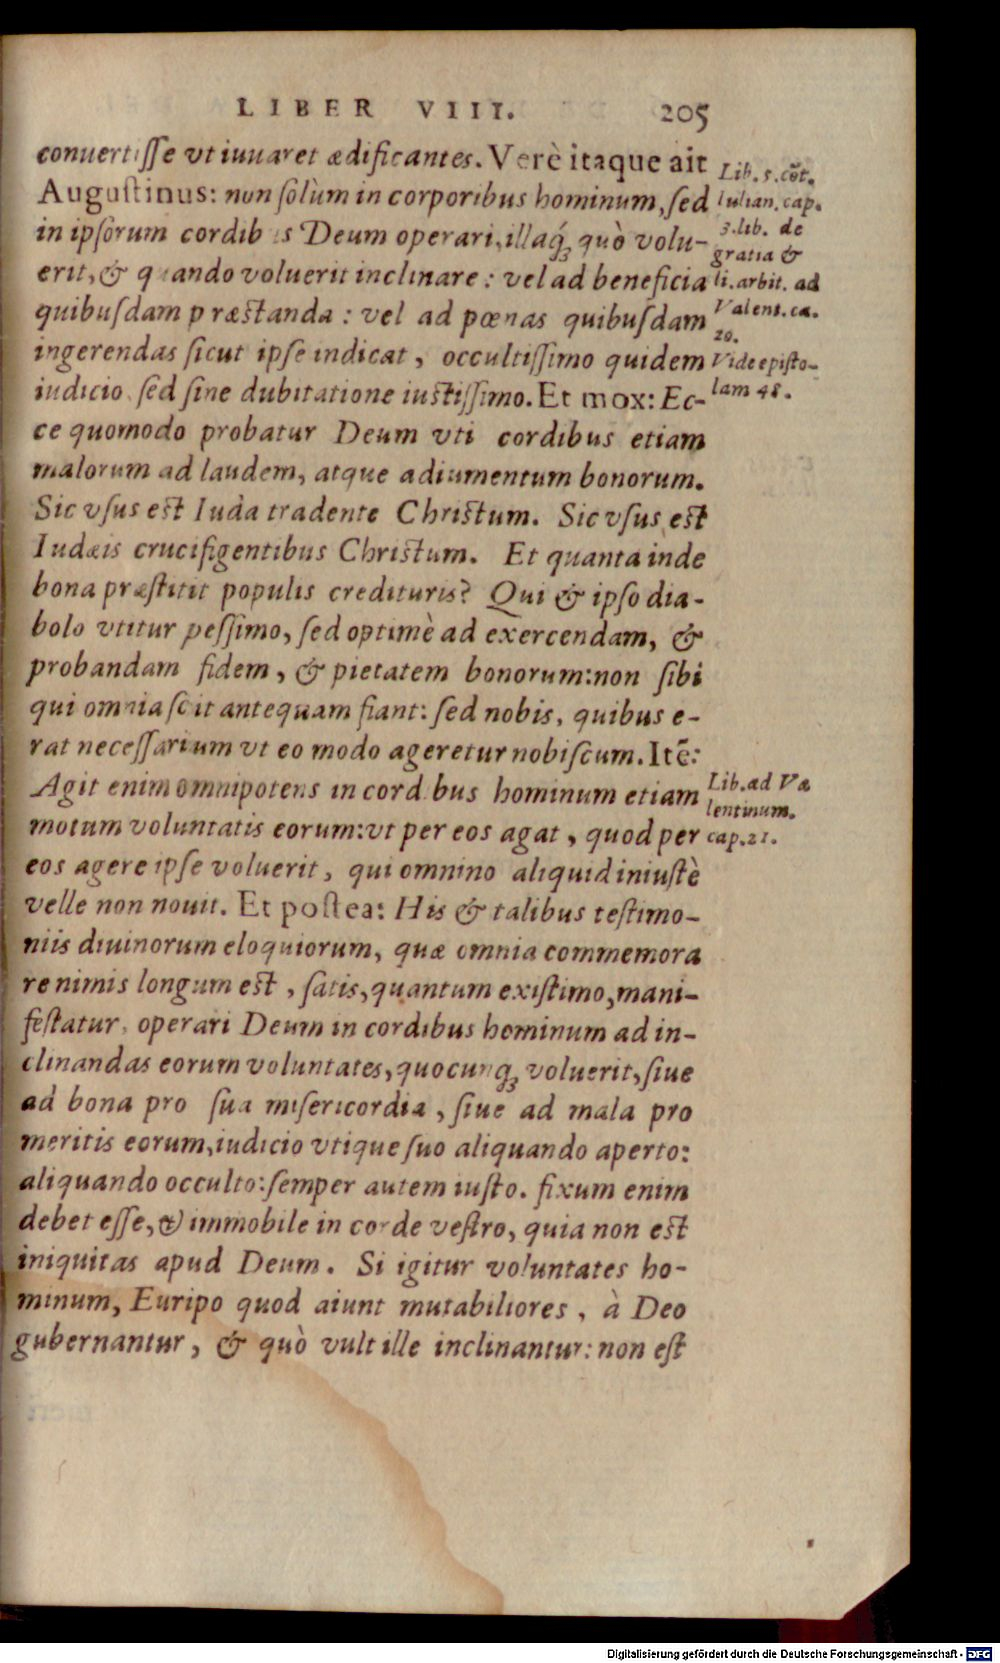 LIBER VIII. 205
conuertisse vt iuuaret ædificantes. Verè itaque ait
Augustinus: non solùm in corporibus hominum, sed
in ipsorum cordibus Deum operari, illaq́; quò volu-
erit, & quando voluerit inclinare: vel ad beneficia
quibusdam præstanda: vel ad pœnas quibusdam
ingerendas sicut ipse indicat, occultissimo quidem
iudicio, sed sine dubitatione iustissimo. Et mox: Ec-
ce quomodo probatur Deum vti cordibus etiam
malorum ad laudem, atque adiumentum bonorum.
Sic vsus est Iuda tradente Christum. Sic vsus est
Iudæis crucifigentibus Christum. Et quanta inde
bona præstitit populis credituris? Qui & ipso dia-
bolo vtitur pessimo, sed optimè ad exercendam, &
probandam fidem, & pietatem bonorum: non sibi
qui omnia scit antequam fiant: sed nobis, quibus e-
rat necessarium vt eo modo ageretur nobiscum. Itẽ:
Agit enim omnipotens in cordibus hominum etiam
motum voluntatis eorum: vt per eos agat, quod per
eos agere ipse voluerit, qui omnino aliquid iniustè
velle non nouit. Et postea: His & talibus testimo-
niis diuinorum eloquiorum, quæ omnia commemora
re nimis longum est, satis, quantum existimo, mani-
festatur, operari Deum in cordibus hominum ad in-
clinandas eorum voluntates, quocunq́; voluerit, siue
ad bona pro sua misericordia, siue ad mala pro
meritis eorum, iudicio vtique suo aliquando aperto:
aliquando occulto: semper autem iusto. fixum enim
debet esse, & immobile in corde vestro, quia non est
iniquitas apud Deum. Si igitur voluntates ho-
minum, Euripo quod aiunt mutabiliores, à Deo
gubernantur, & quò vult ille inclinantur: non est
Lib. 5. cõt.
Iulian. cap.
3. lib. de
gratia &
li. arbit. ad
Valent. ca.
20.
Vide episto-
lam 48.
Lib. ad Va
lentinum.
cap. 21.
Digitalisierung gefördert durch die Deutsche Forschungsgemeinschaft - DFG